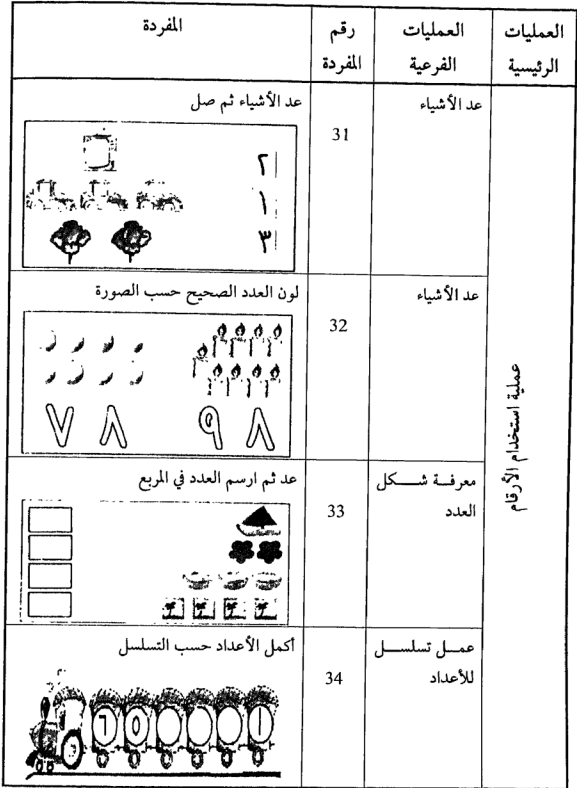 العمليات الرئيسية
العمليات الفرعية
رقم المفردة
المفردة
عملية استخدام الأرقام
عد الأشياء
31
عد الأشياء ثم صل
٢
١
٣
عد الأشياء
32
لون العدد الصحيح حسب الصورة
٨ ٩ ٨ ٧
معرفة شكل
العدد
33
عد ثم ارسم العدد في المربع
عمل تسلسل
للأعداد
34
أكمل الأعداد حسب التسلسل
١ ٥ ٦